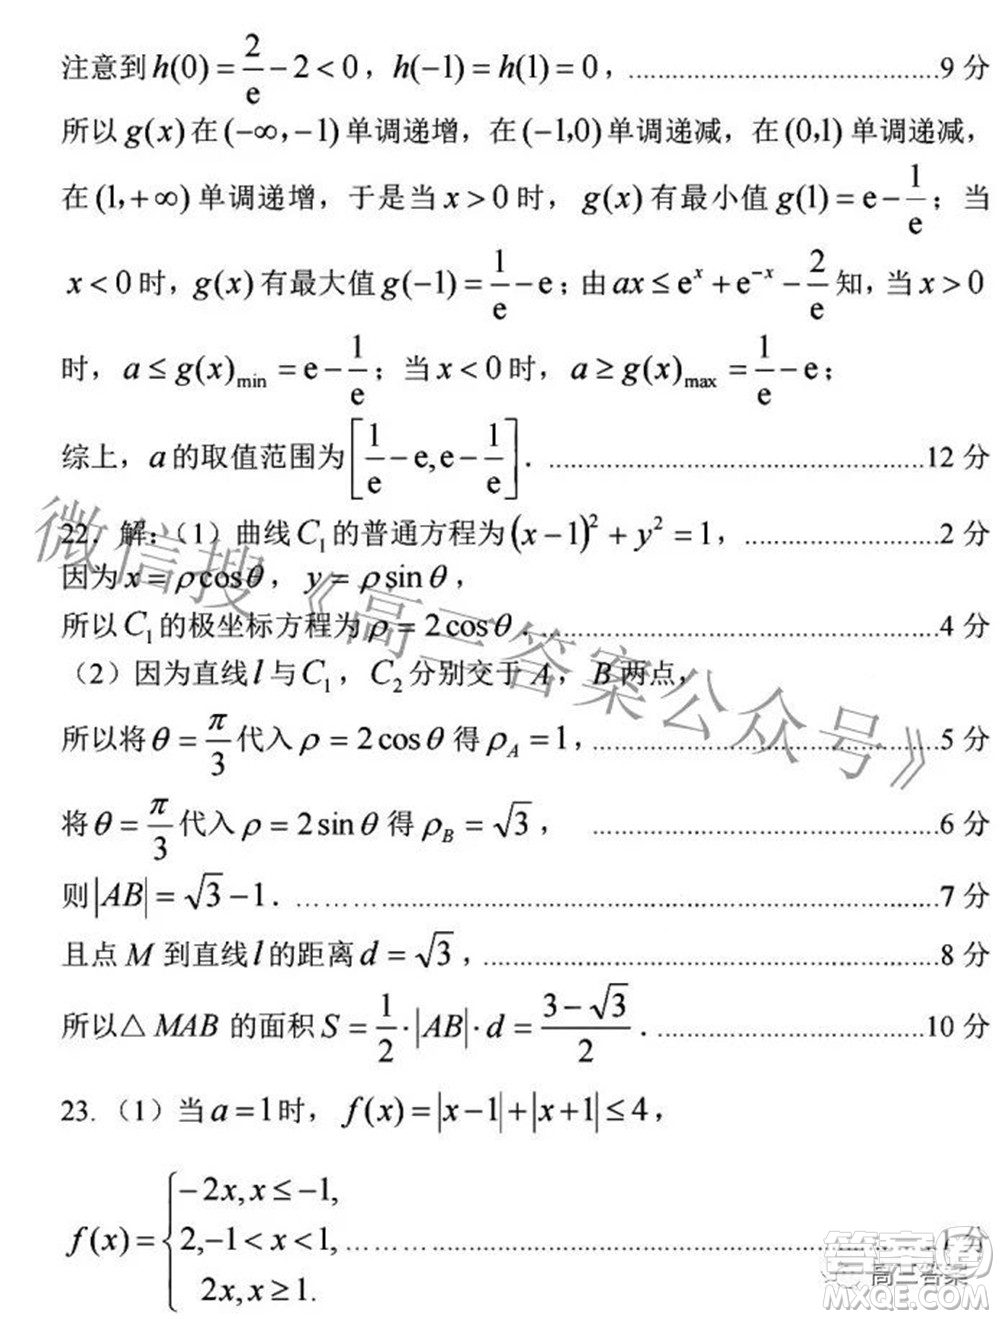 注意到 h(0) = 2/e − 2 < 0，h(−1) = h(1) = 0，……………………9 分
所以 g(x) 在 (−∞, −1) 单调递增，在 (−1,0) 单调递减，在 (0,1) 单调递减，
在 (1, +∞) 单调递增，于是当 x > 0 时，g(x) 有最小值 g(1) = e − 1/e；当
x < 0 时，g(x) 有最大值 g(−1) = 1/e − e；由 ax ≤ e^x + e^{−x} − 2/e 知，当 x > 0
时，a ≤ g(x)_min = e − 1/e；当 x < 0 时，a ≥ g(x)_max = 1/e − e；
综上，a 的取值范围为 [1/e − e, e − 1/e]．……………………12 分
22．解：（1）曲线 C₁ 的普通方程为 (x − 1)² + y² = 1，……………………2 分
因为 x = ρcosθ，y = ρsinθ，
所以 C₁ 的极坐标方程为 ρ = 2cosθ．……………………4 分
（2）因为直线 l 与 C₁，C₂ 分别交于 A，B 两点，
所以将 θ = π/3 代入 ρ = 2cosθ 得 ρ_A = 1，……………………5 分
将 θ = π/3 代入 ρ = 2sinθ 得 ρ_B = √3，……………………6 分
则 |AB| = √3 − 1．……………………7 分
且点 M 到直线 l 的距离 d = √3，……………………8 分
所以△MAB 的面积 S = 1/2 · |AB| · d = (3 − √3)/2．……………………10 分
23.（1）当 a = 1 时，f(x) = |x − 1| + |x + 1| ≤ 4，
f(x) = { −2x, x ≤ −1,
2, −1 < x < 1, ……………………1 分
2x, x ≥ 1.
微信搜《高三答案公众号》
高三答案
答案圈
MXQE.COM